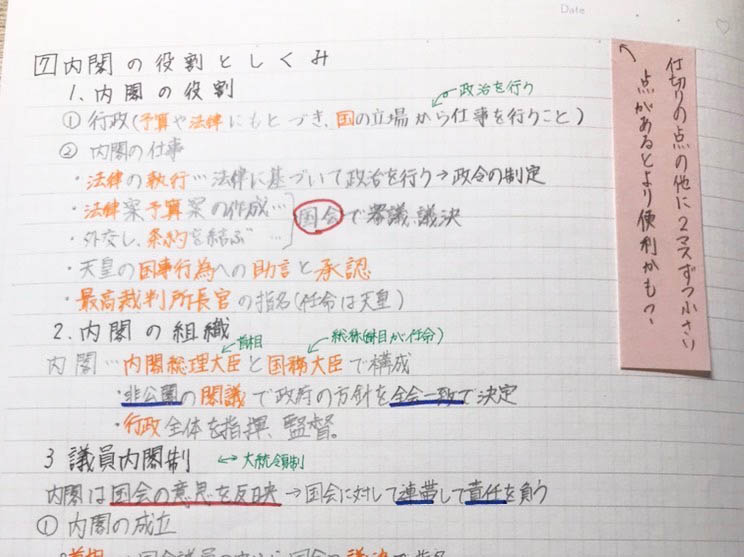 Date
7 内閣の役割としくみ
1. 内閣の役割
政治を行う
① 行政(予算や法律にもとづき、国の立場から仕事を行うこと)
② 内閣の仕事
・法律の執行…法律に基づいて政治を行う→政令の制定
・法律案予算案の作成…
国会で審議、議決
・外交し、条約を結ぶ…
・天皇の国事行為への助言と承認
・最高裁判所長官の指名(任命は天皇)
2. 内閣の組織
首相
が任命)
内閣…内閣総理大臣と国務大臣で構成
・非公開の閣議で政府の方針を全会一致で決定
・行政全体を指揮、監督。
3 議員内閣制 ↔大統領制
内閣は国会の意思を反映→国会に対して連帯して責任を負う
① 内閣の成立
首相
仕切りの点の他に2マスずつ小さい
点があるとより便利かも?